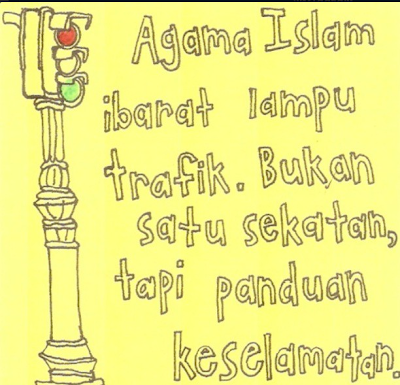 Agama Islam
ibarat lampu
trafik. Bukan
satu sekatan,
tapi panduan
keselamatan.